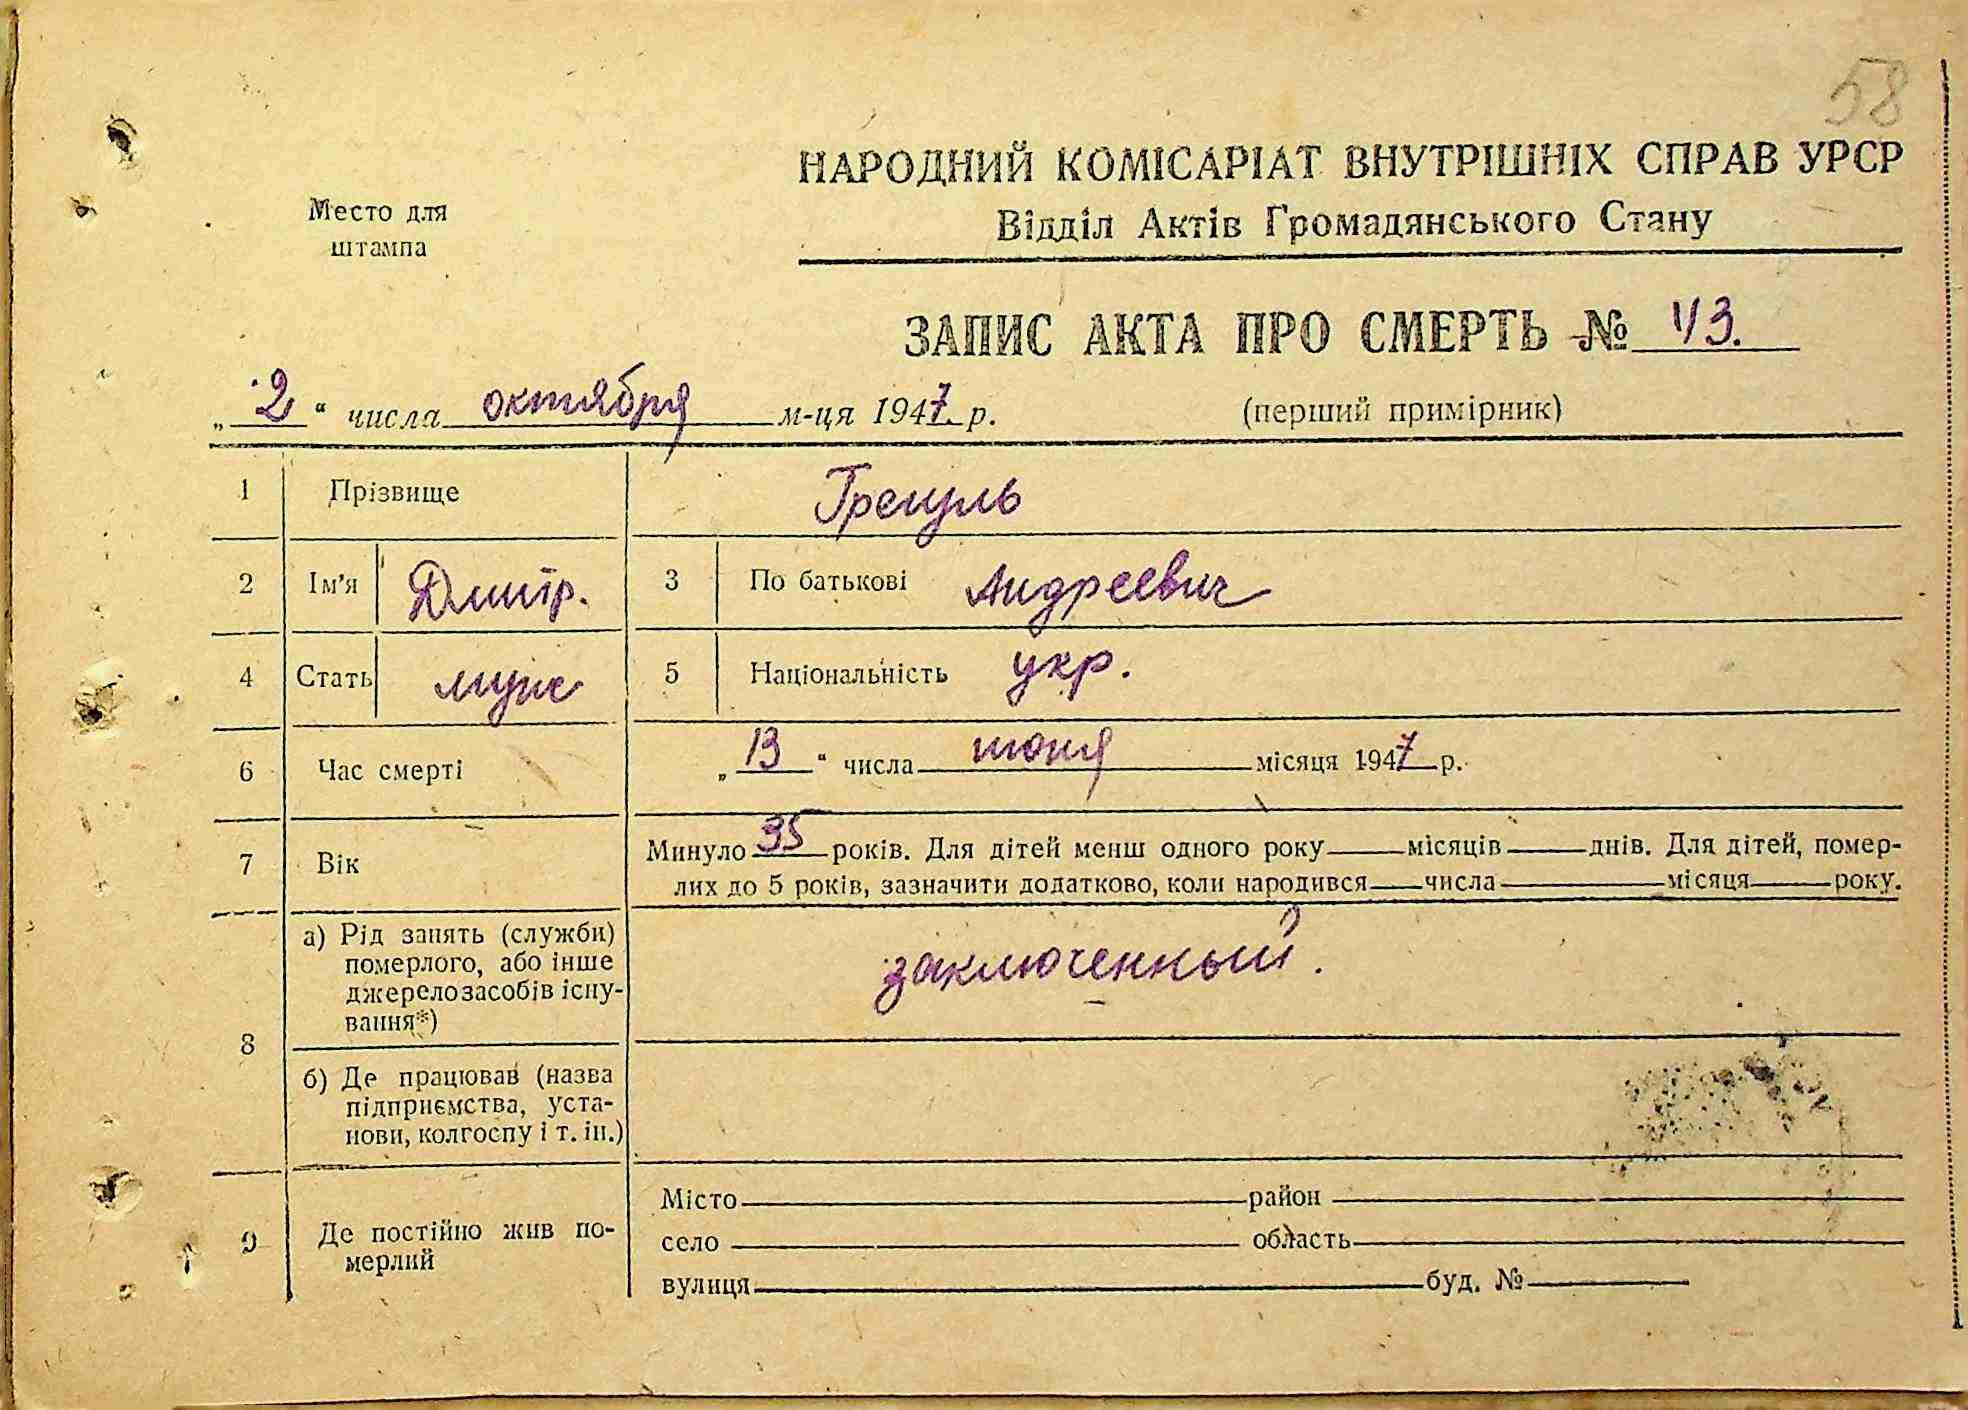 58
НАРОДНИЙ КОМІСАРІАТ ВНУТРІШНІХ СПРАВ УРСР
Место для
штампа
Відділ Актів Громадянського Стану
ЗАПИС АКТА ПРО СМЕРТЬ № 43.
„2“ числа октября м-ця 1947 р.
(перший примірник)
1 Прізвище Грегуль
2 Ім'я Дмитр. 3 По батькові Андреевич
4 Стать муж 5 Національність укр.
6 Час смерті „13“ числа июня місяця 1947 р.
7 Вік Минуло 35 років. Для дітей менш одного року місяців днів. Для дітей, помер-
лих до 5 років, зазначити додатково, коли народився числа місяця року.
8 а) Рід занять (служби)
померлого, або інше
джерело засобів існу-
вання*)
заключенный.
б) Де працював (назва
підприємства, уста-
нови, колгоспу і т. ін.)
9 Де постійно жив по-
мерлий
Місто район
село область
вулиця буд. №